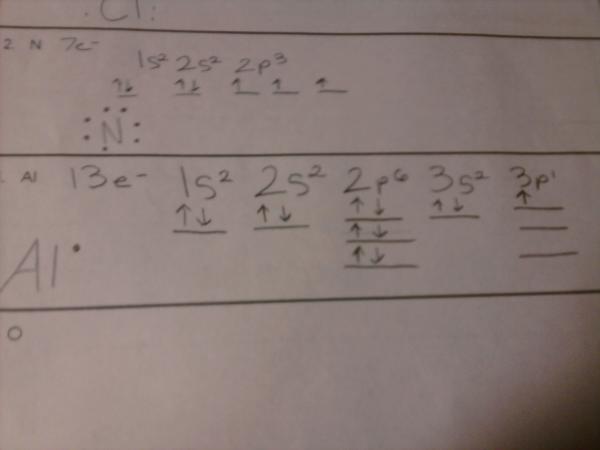 Cl
2. N 7e⁻
1s² 2s² 2p³
↑↓ ↑↓ ↑ ↑ ↑
N
Al 13e⁻ 1s² 2s² 2p⁶ 3s² 3p¹
↑↓ ↑↓ ↑↓ ↑↓ ↑
↑↓
↑↓
Al
O